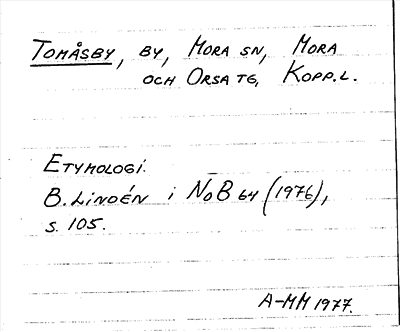 TOMÅSBY, BY, MORA SN, MORA
OCH ORSA TG, KOPP.L.
ETYMOLOGI.
B. LINDÉN i NoB 64 (1976),
s. 105.
A-MM 1977.